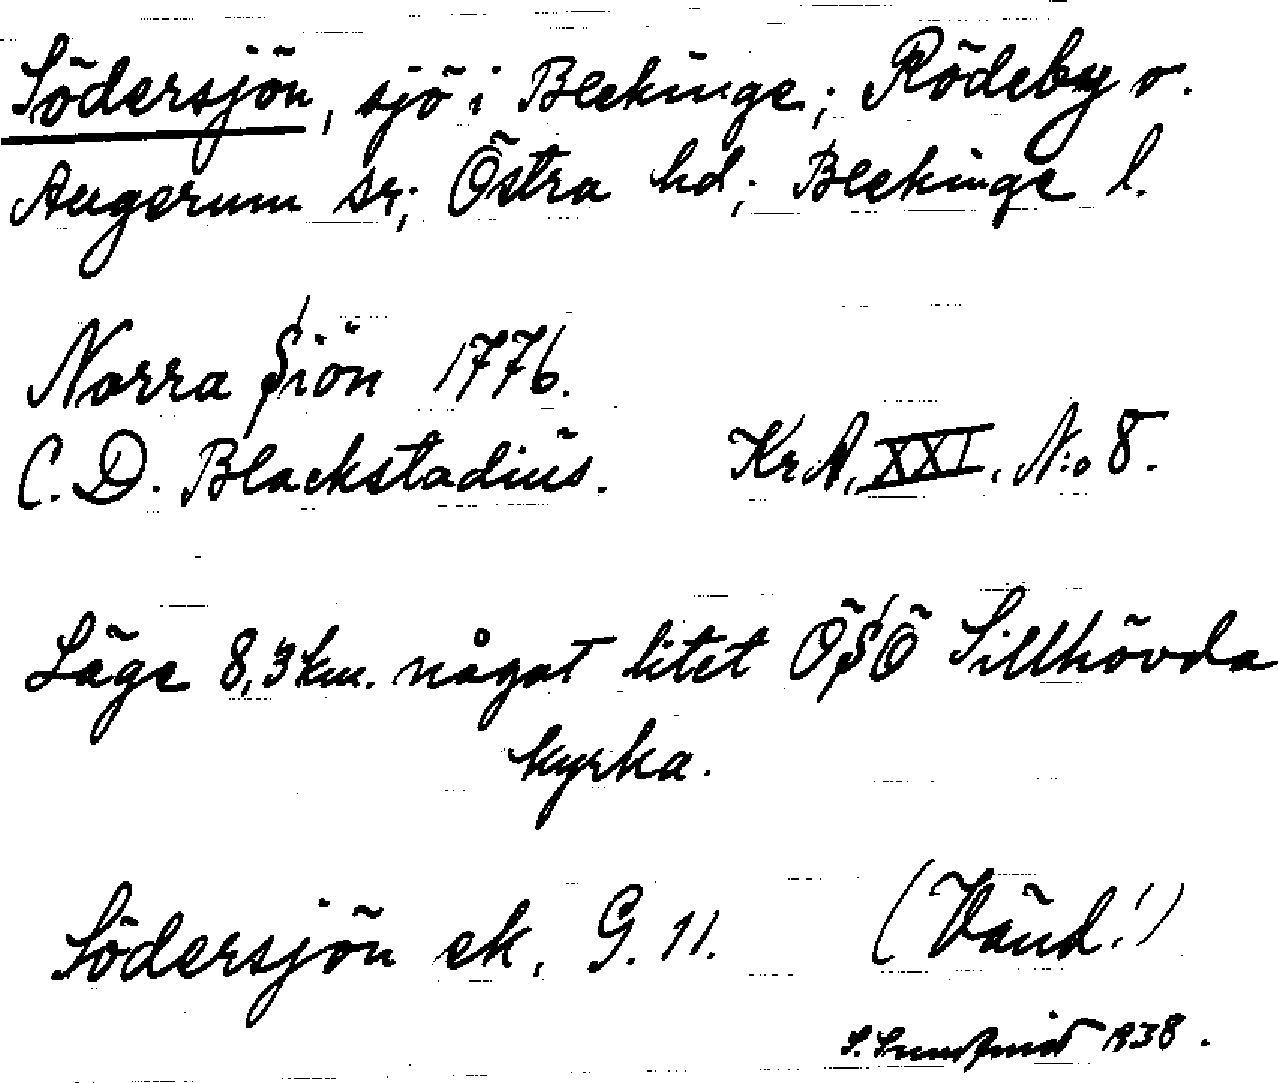 Södersjön, sjö i Blekinge; Rödeby o.
Augerum sr; Östra hd; Blekinge l.
Norra Siön 1776.
C. D. Blackstadius. Kr A, XXI. N:o 8.
Läge 8,3 km. något litet ÖSÖ Sillhövda
kyrka.
Södersjön ek. G. 11. (Vänd!)
S. 1938.